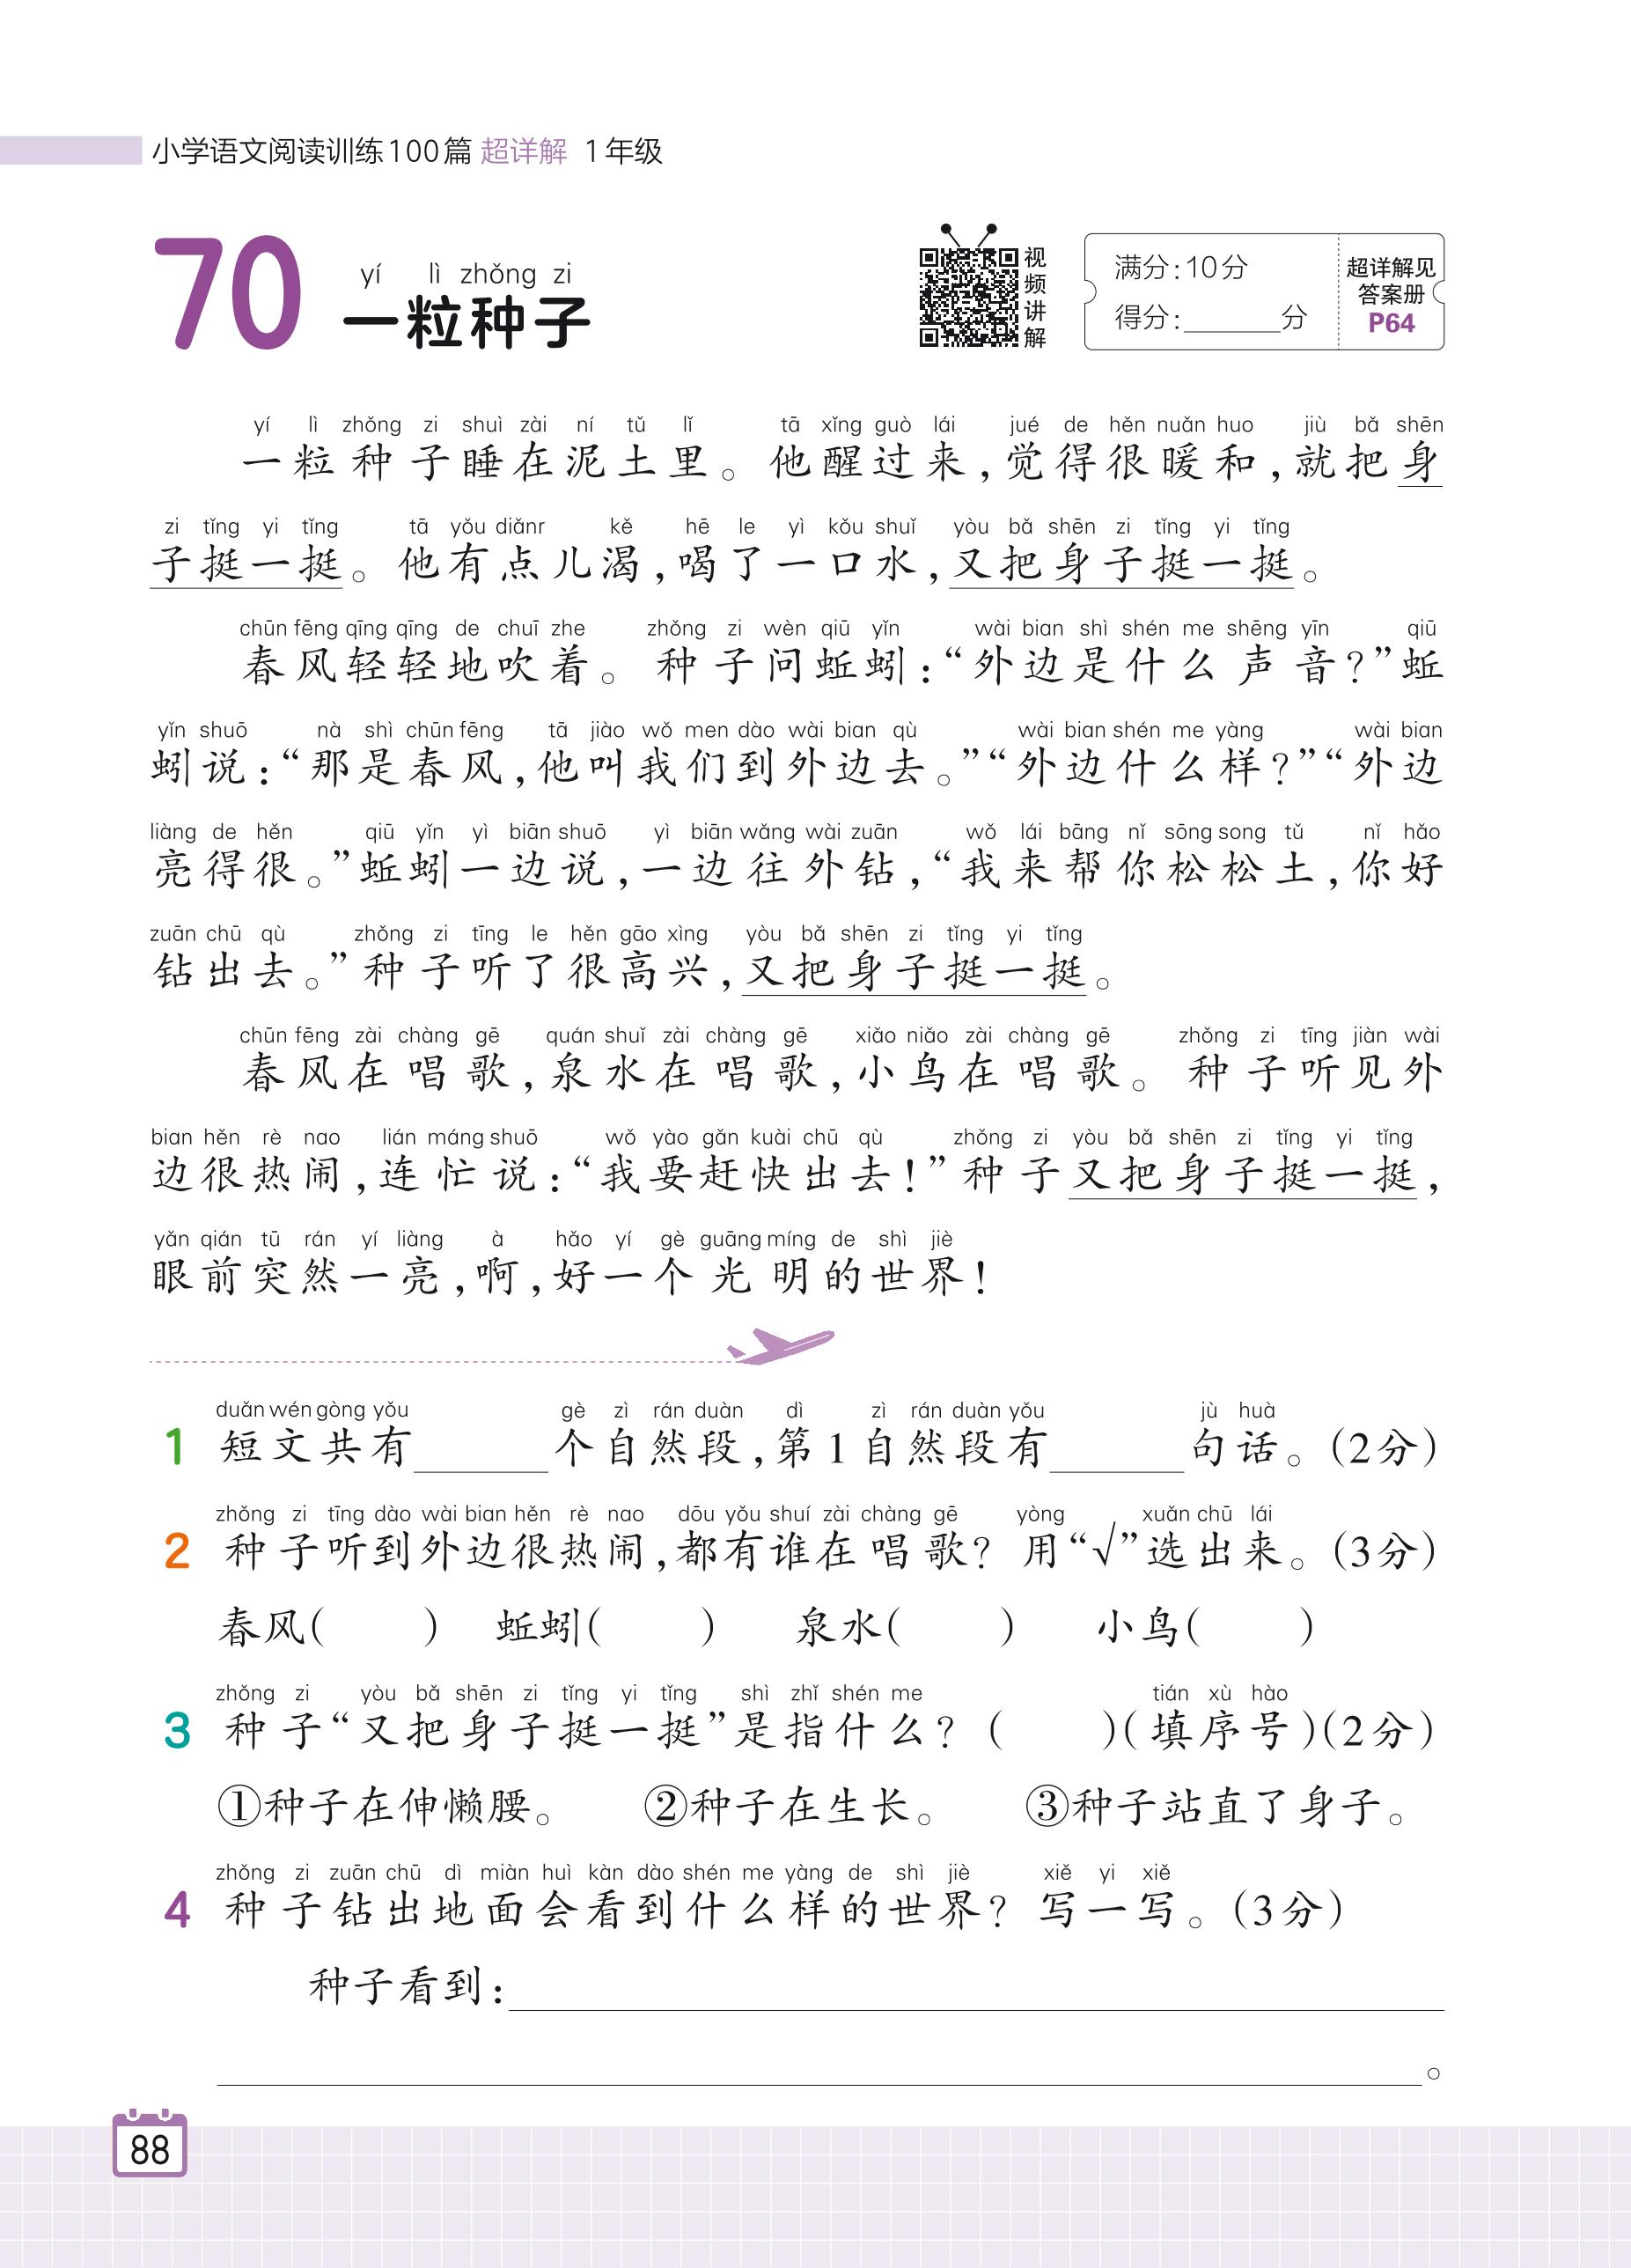 小学语文阅读训练100篇 超详解 1年级
70
yí lì zhǒng zi
一粒种子
视频讲解
满分:10分
得分:______分
超详解见
答案册
P64
yí lì zhǒng zi shuì zài ní tǔ lǐ tā xǐng guò lái jué de hěn nuǎn huo jiù bǎ shēn
一粒种子睡在泥土里。他醒过来,觉得很暖和,就把身
zi tǐng yi tǐng tā yǒu diǎnr kě hē le yì kǒu shuǐ yòu bǎ shēn zi tǐng yi tǐng
子挺一挺。他有点儿渴,喝了一口水,又把身子挺一挺。
chūn fēng qīng qīng de chuī zhe zhǒng zi wèn qiū yǐn wài bian shì shén me shēng yīn qiū
春风轻轻地吹着。种子问蚯蚓:“外边是什么声音?”蚯
yǐn shuō nà shì chūn fēng tā jiào wǒ men dào wài bian qù wài bian shén me yàng wài bian
蚓说:“那是春风,他叫我们到外边去。”“外边什么样?”“外边
liàng de hěn qiū yǐn yì biān shuō yì biān wǎng wài zuān wǒ lái bāng nǐ sōng song tǔ nǐ hǎo
亮得很。”蚯蚓一边说,一边往外钻,“我来帮你松松土,你好
zuān chū qù zhǒng zi tīng le hěn gāo xìng yòu bǎ shēn zi tǐng yi tǐng
钻出去。”种子听了很高兴,又把身子挺一挺。
chūn fēng zài chàng gē quán shuǐ zài chàng gē xiǎo niǎo zài chàng gē zhǒng zi tīng jiàn wài
春风在唱歌,泉水在唱歌,小鸟在唱歌。种子听见外
bian hěn rè nao lián máng shuō wǒ yào gǎn kuài chū qù zhǒng zi yòu bǎ shēn zi tǐng yi tǐng
边很热闹,连忙说:“我要赶快出去!”种子又把身子挺一挺,
yǎn qián tū rán yí liàng à hǎo yí gè guāng míng de shì jiè
眼前突然一亮,啊,好一个光明的世界!
duǎn wén gòng yǒu gè zì rán duàn dì zì rán duàn yǒu jù huà
1 短文共有______个自然段,第1自然段有______句话。(2分)
zhǒng zi tīng dào wài bian hěn rè nao dōu yǒu shuí zài chàng gē yòng xuǎn chū lái
2 种子听到外边很热闹,都有谁在唱歌?用“√”选出来。(3分)
春风( ) 蚯蚓( ) 泉水( ) 小鸟( )
zhǒng zi yòu bǎ shēn zi tǐng yi tǐng shì zhǐ shén me tián xù hào
3 种子“又把身子挺一挺”是指什么?( )(填序号)(2分)
①种子在伸懒腰。 ②种子在生长。 ③种子站直了身子。
zhǒng zi zuān chū dì miàn huì kàn dào shén me yàng de shì jiè xiě yi xiě
4 种子钻出地面会看到什么样的世界?写一写。(3分)
种子看到:______
______。
88